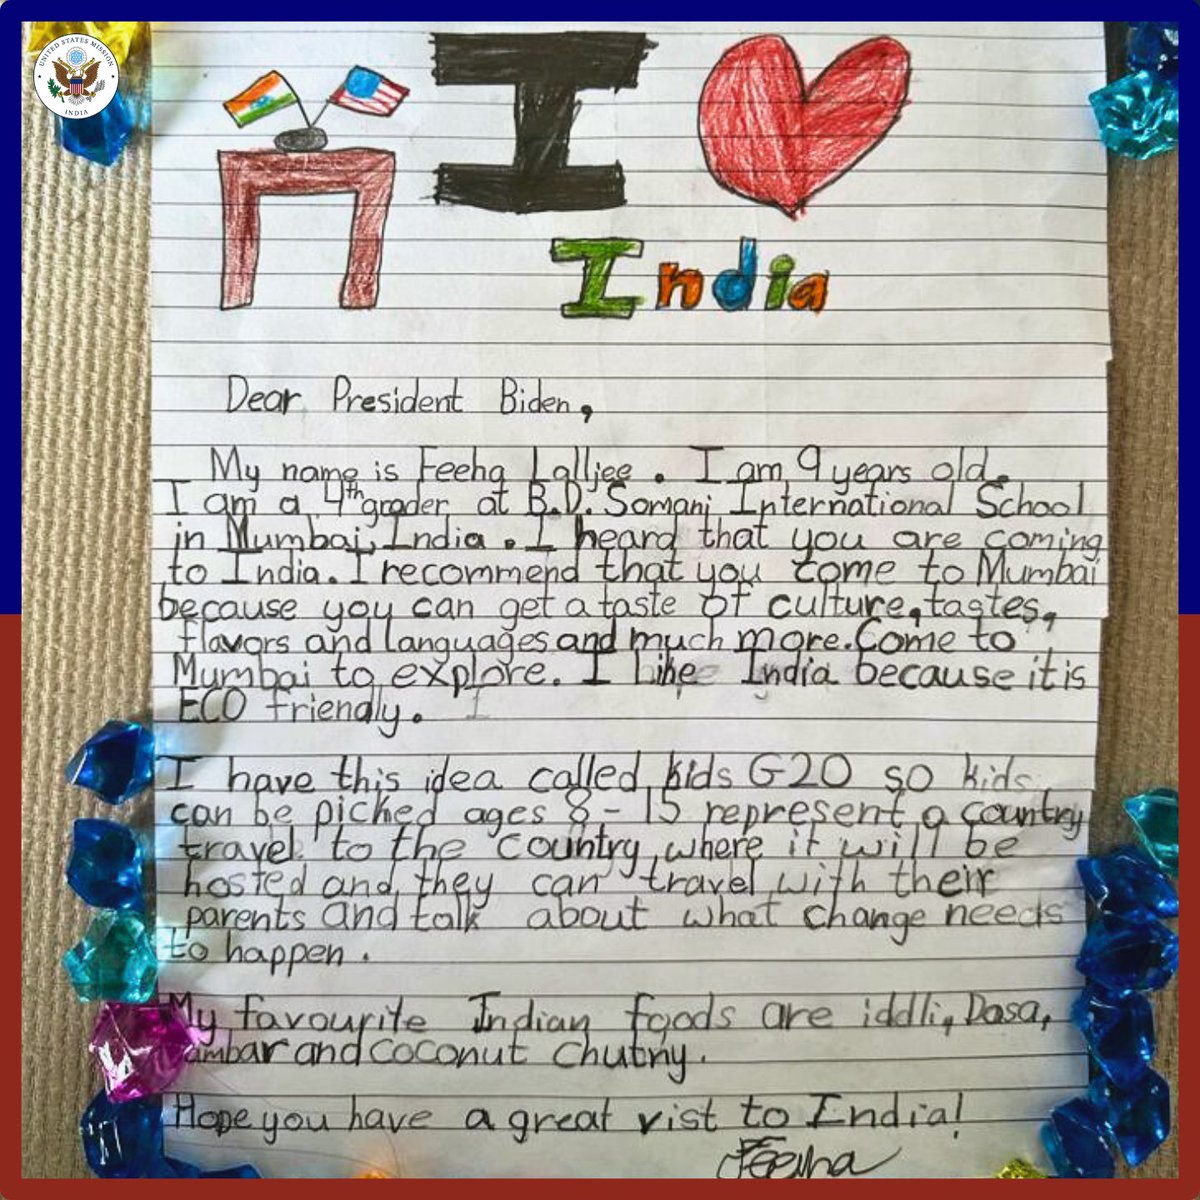 UNITED STATES MISSION
INDIA
I
India
Dear President Biden,
My name is Feeha Lalljee. I am 9 years old.
I am a 4th grader at B.D. Somani International School
in Mumbai, India. I heard that you are coming
to India. I recommend that you come to Mumbai
because you can get a taste of culture, tastes,
flavors and languages and much more. Come to
Mumbai to explore. I like India because it is
ECO friendly.
I have this idea called kids G20 so kids
can be picked ages 8-15 represent a country
travel to the country where it will be
hosted and they can travel with their
parents and talk about what change needs
to happen.
My favourite Indian foods are iddli, Dosa,
ambar and coconut chutny.
Hope you have a great vist to India!
Feeha